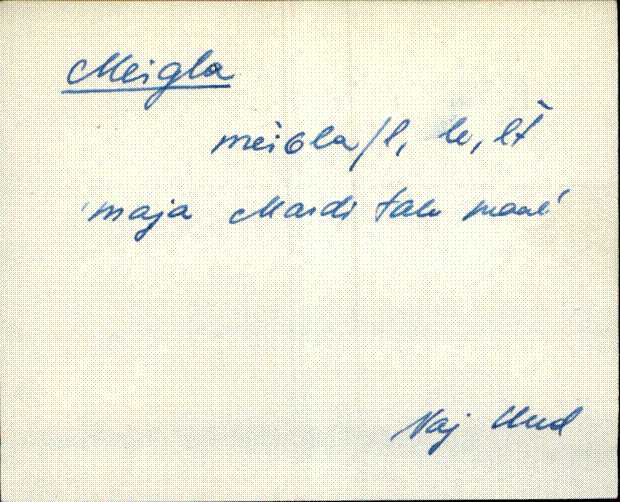 Meigla
meiGla/l, le, lt
'maja Mardi talu maal'
Vaj Uud